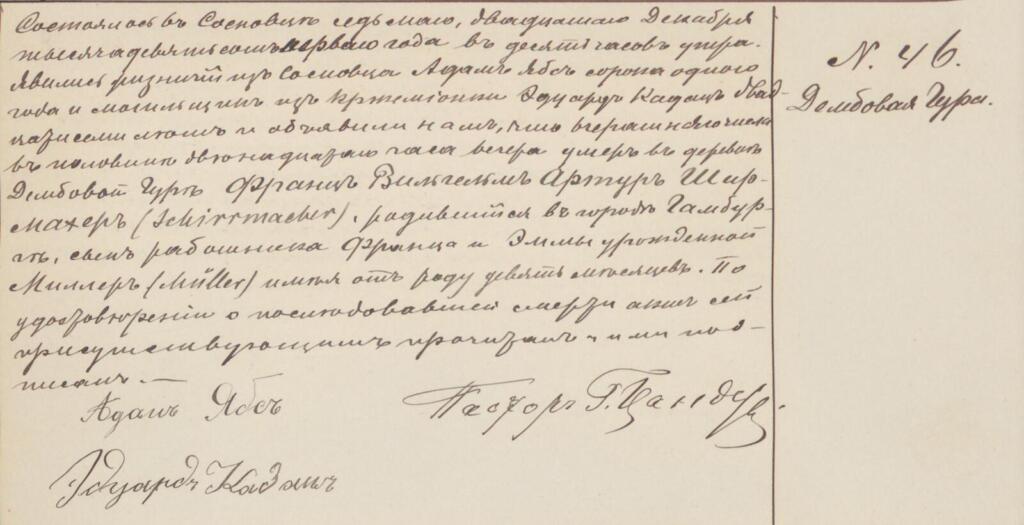 Состоялось въ Сосновцѣ седьмаго, двадцатаго Декабря
тысяча девятьсотъ перваго года въ десять часовъ утра.
Явились ризничій изъ Сосновца Адамъ Ябсъ сорока одного
года и могильщикъ изъ Кржеміонки Эдуардъ Кадацъ двад-
цати семи лѣтъ и объявили намъ, что вчерашняго числа
въ половинѣ двѣнадцатаго часа вечера умеръ въ деревнѣ
Дембовой Гурѣ Францъ Вильгельмъ Артуръ Шир-
махеръ (Schirrmacher), родившійся въ городѣ Гамбур-
гѣ, сынъ работника Франца и Эммы урожденной
Миллеръ (Müller) имѣя отъ роду девять мѣсяцевъ. По
удостовѣреніи о послѣдовавшей смерти актъ сей
присутствующимъ прочитанъ и ими под-
писанъ. —
N. 46.
Дембовая Гура.
Адамъ Ябсъ
Пасторъ Г. Цандеръ
Эдуардъ